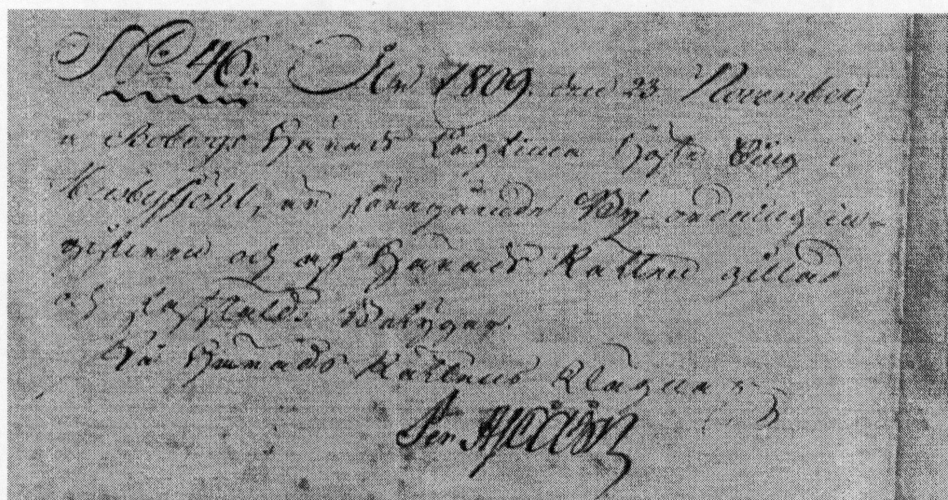 No 46. År 1809. den 23 November,
a Bobergs Härads Lagtima Höste Ting i
Husbyfjöhl, är föregående By-ordning in-
gifven och af Härads Rätten gillad
och fastställd, Betygar.
På Härads Rättens Wägnar
Per